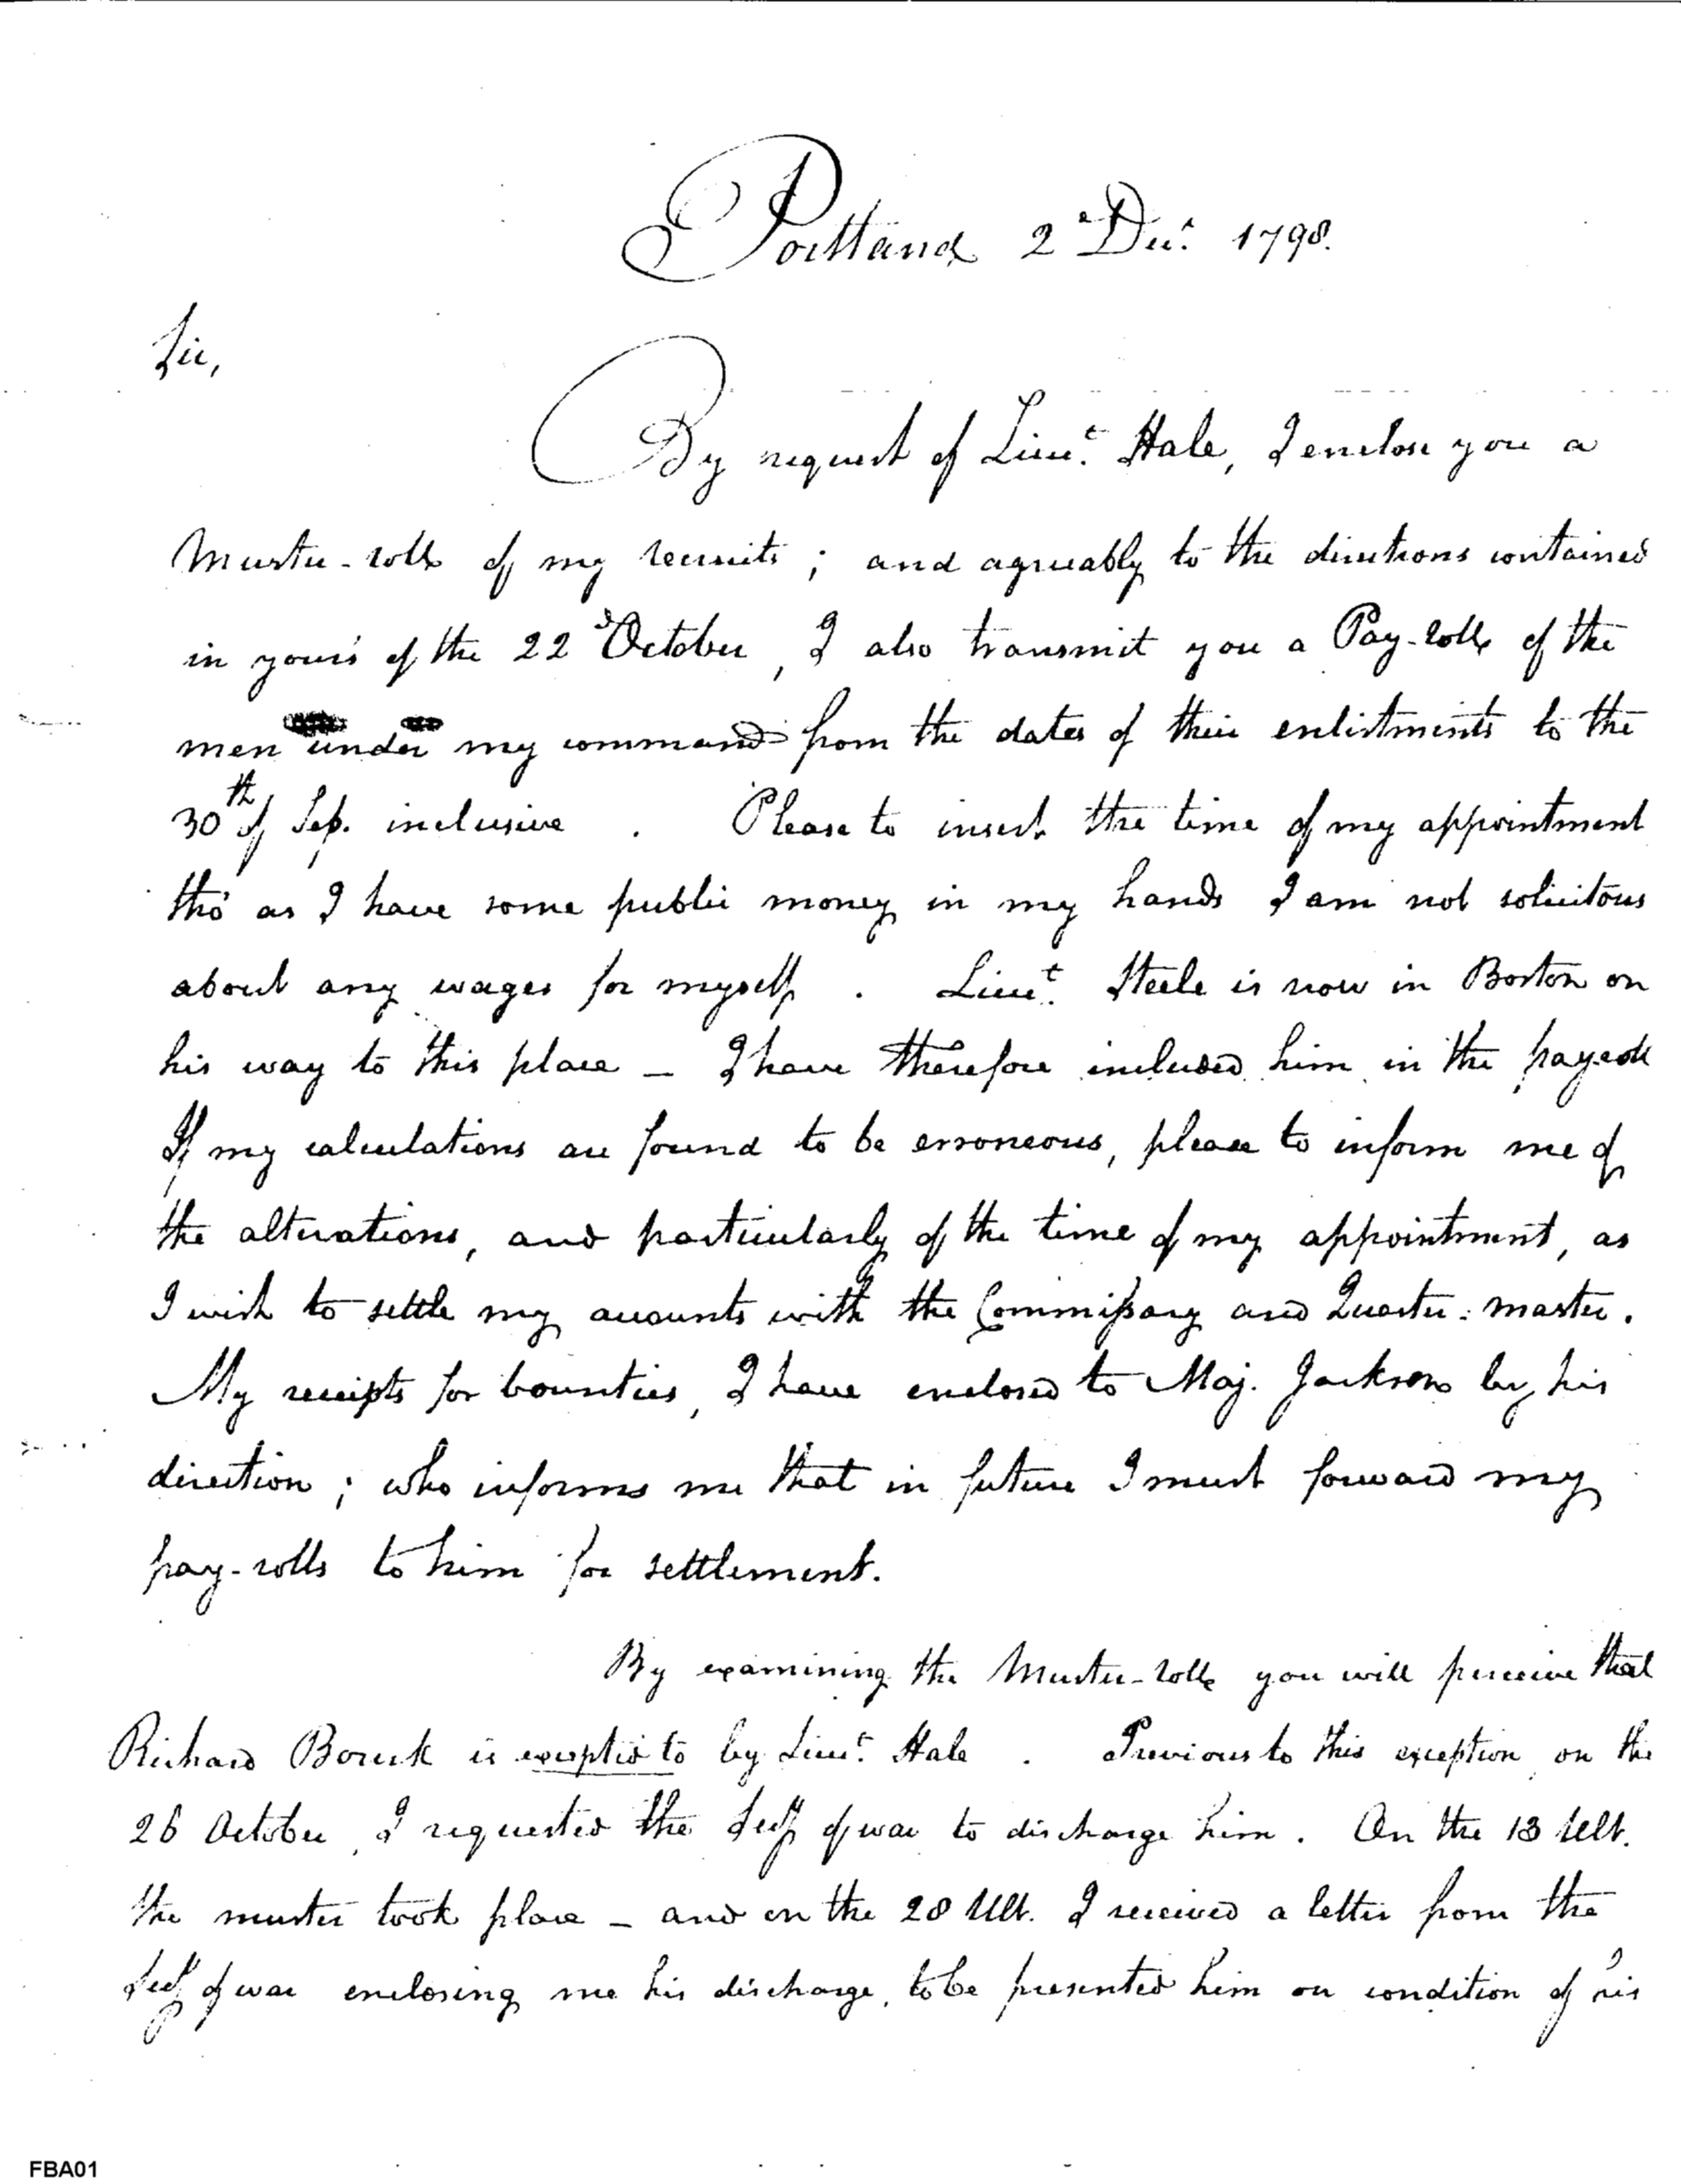 Portland 2d Decr. 1798.
Sir,
By request of Lieut. Hale, I enclose you a
Muster-roll of my recruits; and agreeably to the directions contained
in yours of the 22d October, I also transmit you a Pay-roll of the
men under my command from the dates of their enlistments to the
30th of Sep. inclusive. Please to insert the time of my appointment
tho' as I have some public money in my hands I am not solicitous
about any wages for myself. Lieut. Steele is now in Boston on
his way to this place – I have therefore included him in the payroll
If my calculations are found to be erroneous, please to inform me of
the alterations, and particularly of the time of my appointment, as
I wish to settle my accounts with the Commissary and Quarter-master.
My receipts for bounties, I have enclosed to Maj. Jackson by his
direction; who informs me that in future I must forward my
pay-rolls to him for settlement.
By examining the Muster-roll you will perceive that
Richard is excepted to by Lieut. Hale. Previous to this exception, on the
26 October, I requested the Secy of war to discharge him. On the 13 Ult.
the muster took place – and on the 28 Ult. I received a letter from the
Secy of war enclosing me his discharge, to be presented him on condition of his
FBA01